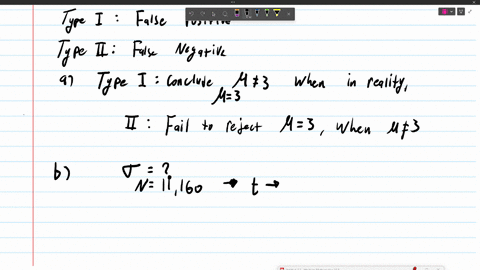 Type I : False Positive
Type II : False Negative
a) Type I : Conclude μ ≠ 3 when in reality,
μ = 3
II : Fail to reject μ = 3, when μ ≠ 3
b) σ = ?
N = 11,160 → t →